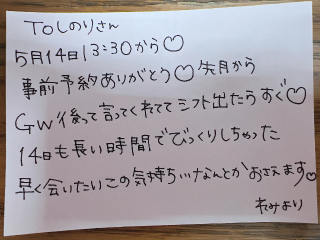 TOしのりさん
5月14日13:30から♡
事前予約ありがとう♡先月から
GW後って言ってくれてて シフト出たらすぐ♡
14日も長い時間でびっくりしちゃった
早く会いたいこの気持ちいなんとかおさえます♡
れみより